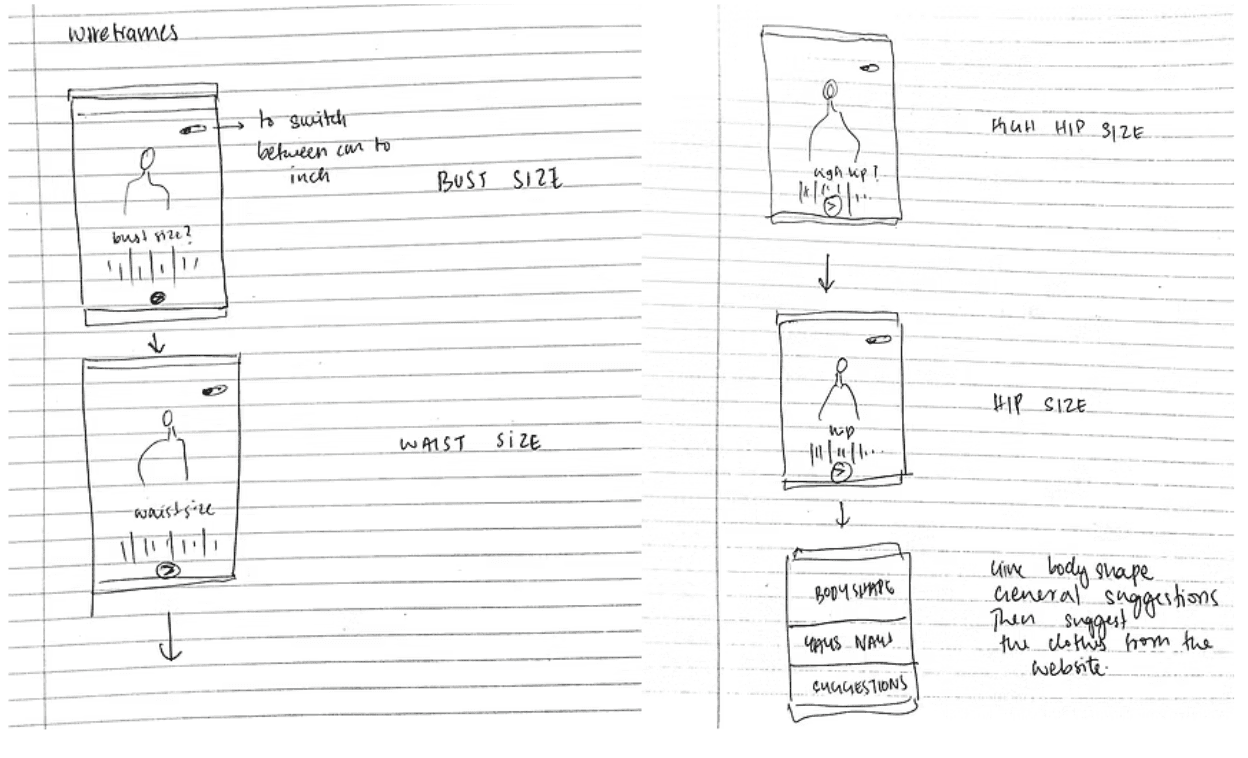 wireframes
to switch
between cm to
inch
BUST SIZE
bust size?
WAIST SIZE
waist size
HIGH HIP SIZE
high hip?
HIP SIZE
hip
BODY SHAPE
YAYS NAYS
SUGGESTIONS
Give body shape
General suggestions
Then suggest
the clothes from the
website.